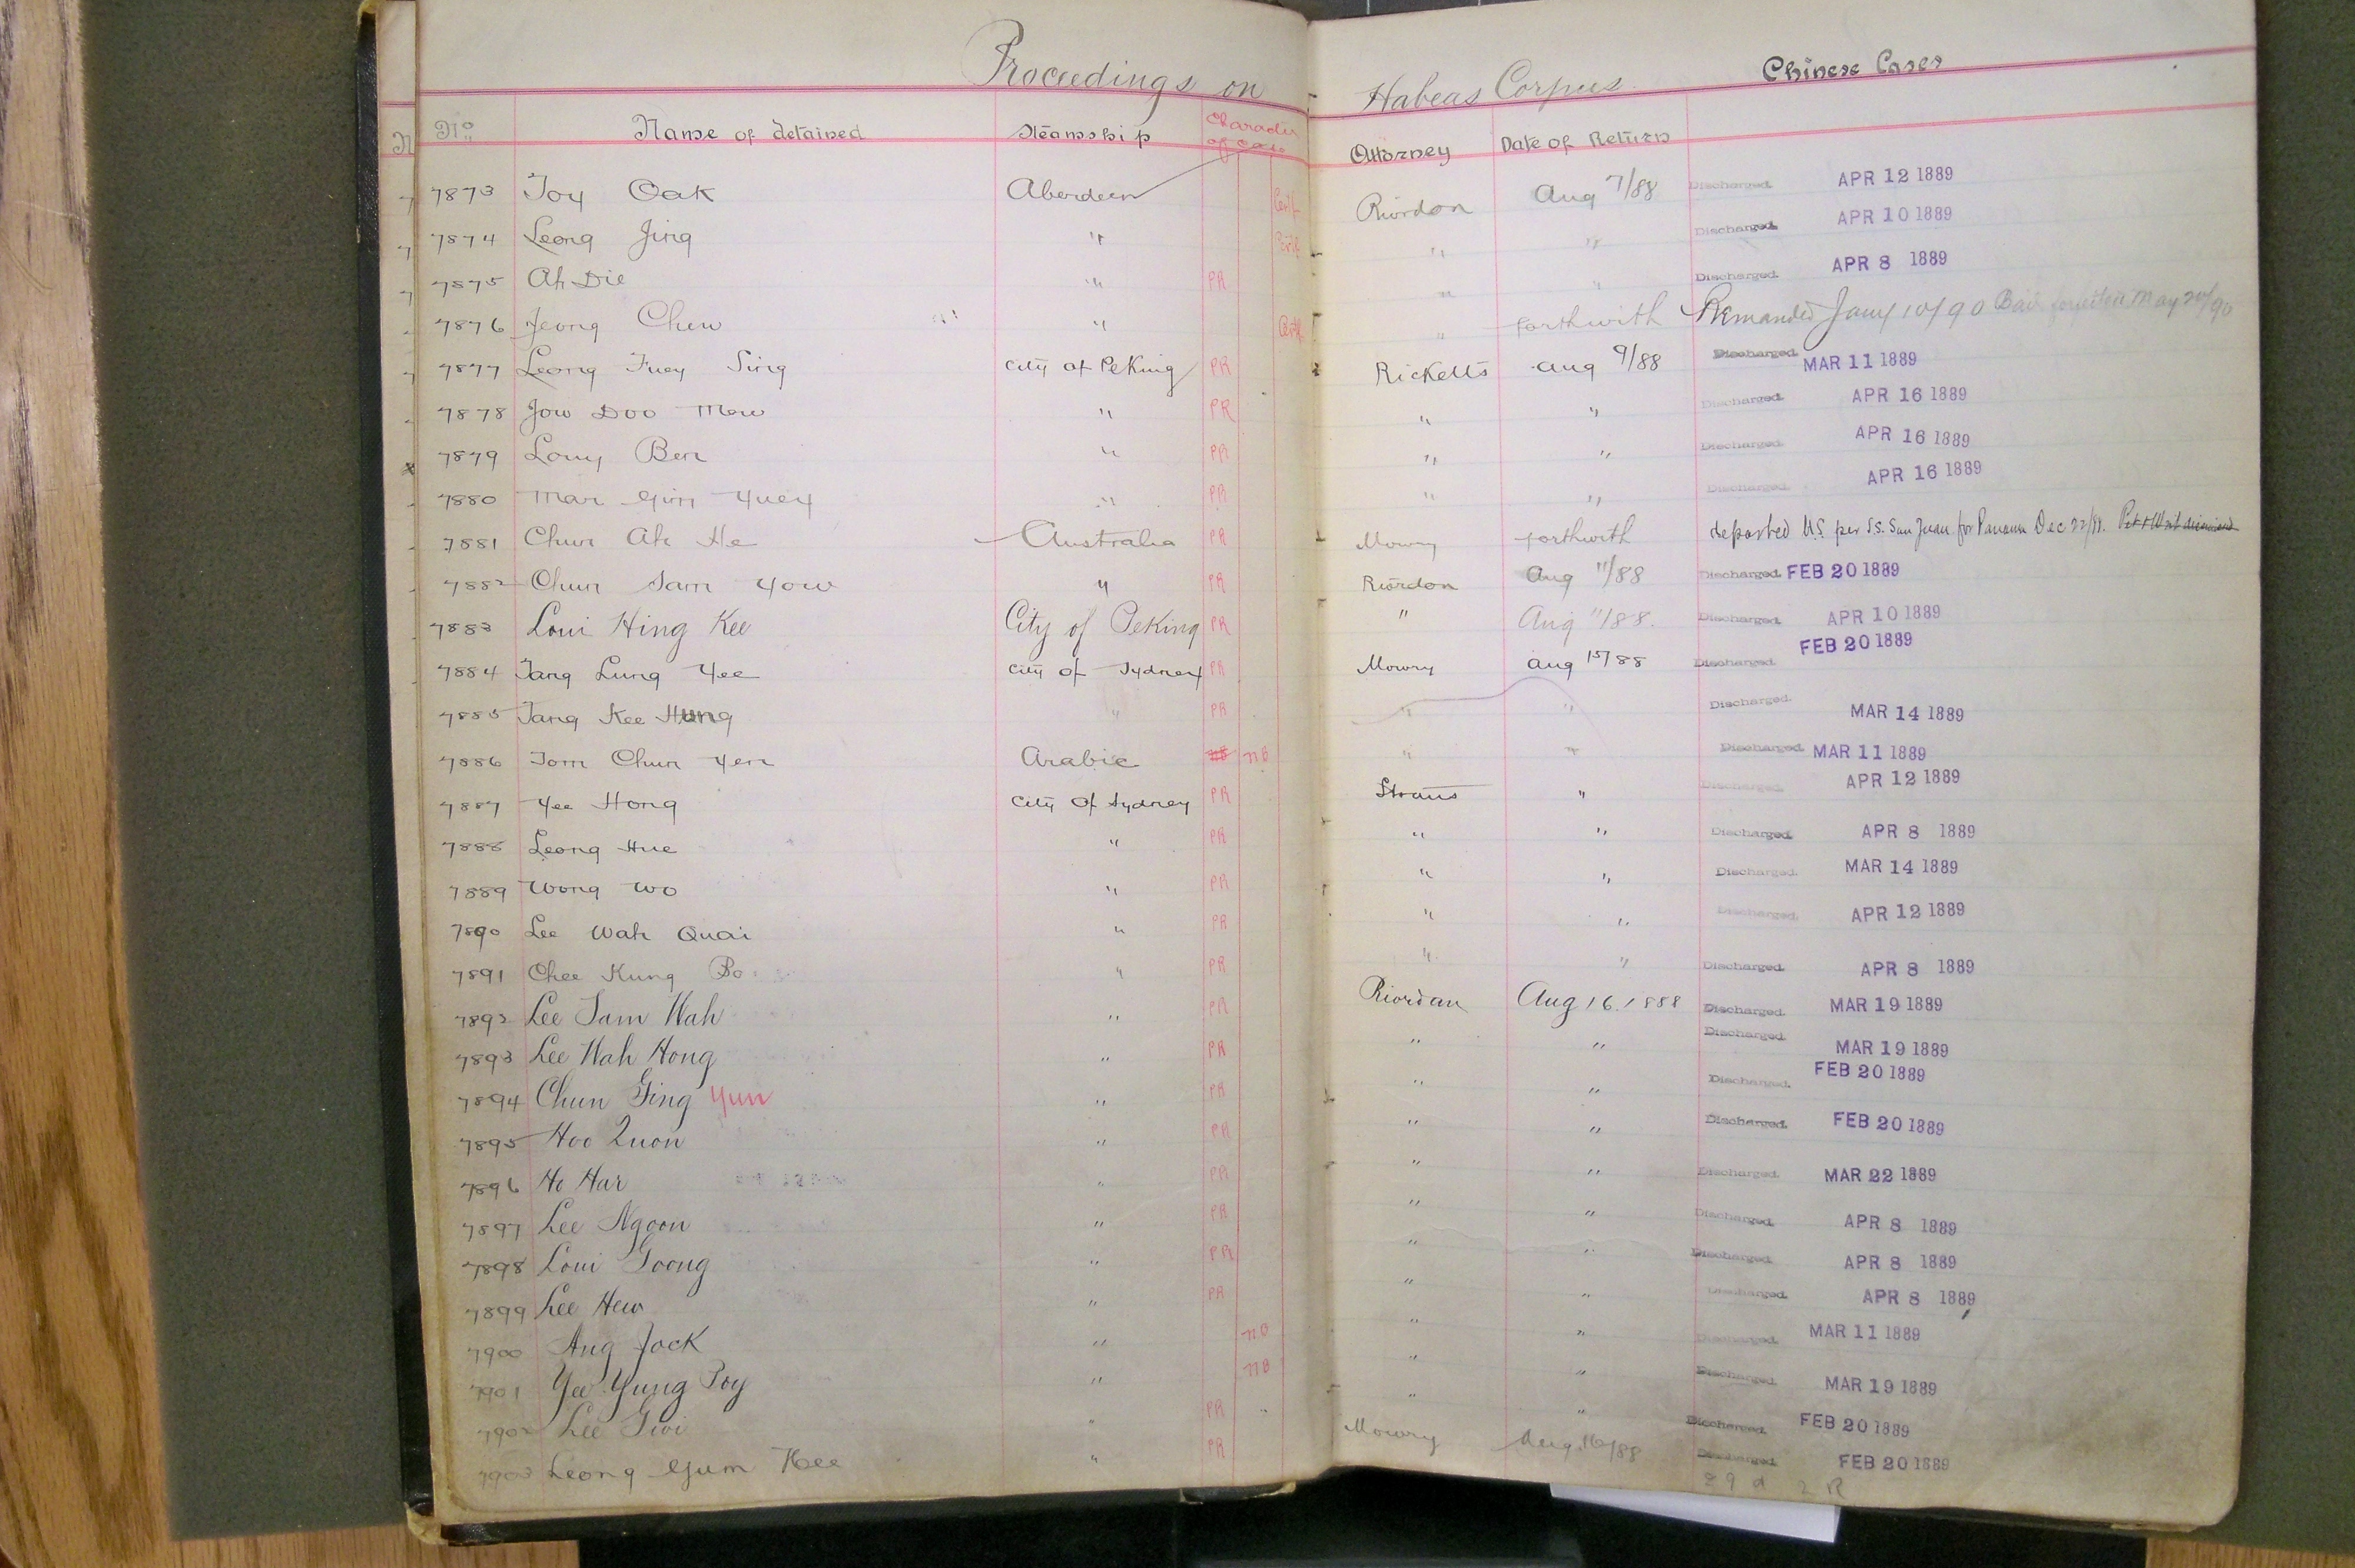 Proceedings on Habeas Corpus Chinese Cases
No. Name of detained Steamship Character of case Attorney Date of Return
7873 Toy Oak Aberdeen Certf Riordon Aug 7/88 Discharged. APR 12 1889
7874 Leong Jing " " " Discharged. APR 10 1889
7875 Ah Die " PR " " Discharged. APR 8 1889
7876 Jeong Chew " " forthwith Remanded Jany 10/90 Bail forfeited May 20/90
7877 Leong Fuey Sing City of Peking PR Ricketts Aug 9/88 Discharged. MAR 11 1889
7878 Jow Doo Mow " PR " " Discharged. APR 16 1889
7879 Louy Ben " PR " " Discharged. APR 16 1889
7880 Mar Gim Yuey " PR " " Discharged. APR 16 1889
7881 Chun Ah He Australia PR Mowry forthwith deported U.S. per S.S. San Juan for Panama Dec 22/88. Pet & Writ dismissed
7882 Chun Sam Yow " PR Riordon Aug 11/88 Discharged. FEB 20 1889
7883 Loui Hing Kee City of Peking PR " Aug 11/88. Discharged. APR 10 1889
7884 Tang Lung Yee City of Sydney PR Mowry Aug 15/88 Discharged. FEB 20 1889
7885 Tang Kee Hung " PR " " Discharged. MAR 14 1889
7886 Tom Chun Yen Arabic NB " " Discharged. MAR 11 1889
7887 Yee Hong City of Sydney PR Straus " Discharged. APR 12 1889
7888 Leong Hue " PR " " Discharged. APR 8 1889
7889 Wong Wo " PR " " Discharged. MAR 14 1889
7890 Lee Wah Quai " PR " " Discharged. APR 12 1889
7891 Chee Kung Bo " PR " " Discharged. APR 8 1889
7892 Lee Sam Wah " PR Riordan Aug 16. 1888 Discharged. MAR 19 1889
7893 Lee Wah Hong " PR " " Discharged. MAR 19 1889
7894 Chun Ging Yun " PR " " Discharged. FEB 20 1889
7895 Hoo Quon " PR " " Discharged. FEB 20 1889
7896 Ho Har " PR " " Discharged. MAR 22 1889
7897 Lee Ngoon " PR " " Discharged. APR 8 1889
7898 Loui Goong " PR " " Discharged. APR 8 1889
7899 Lee Hew " PR " " Discharged. APR 8 1889
7900 Ang Jock " NB " " Discharged. MAR 11 1889
7901 Yee Yung Poy " NB " " Discharged. MAR 19 1889
7902 Lee Gwi " PR " " Discharged. FEB 20 1889
7903 Leong Gum Hee " PR Mowry Aug. 16/88 Discharged. FEB 20 1889
29 d 2 R